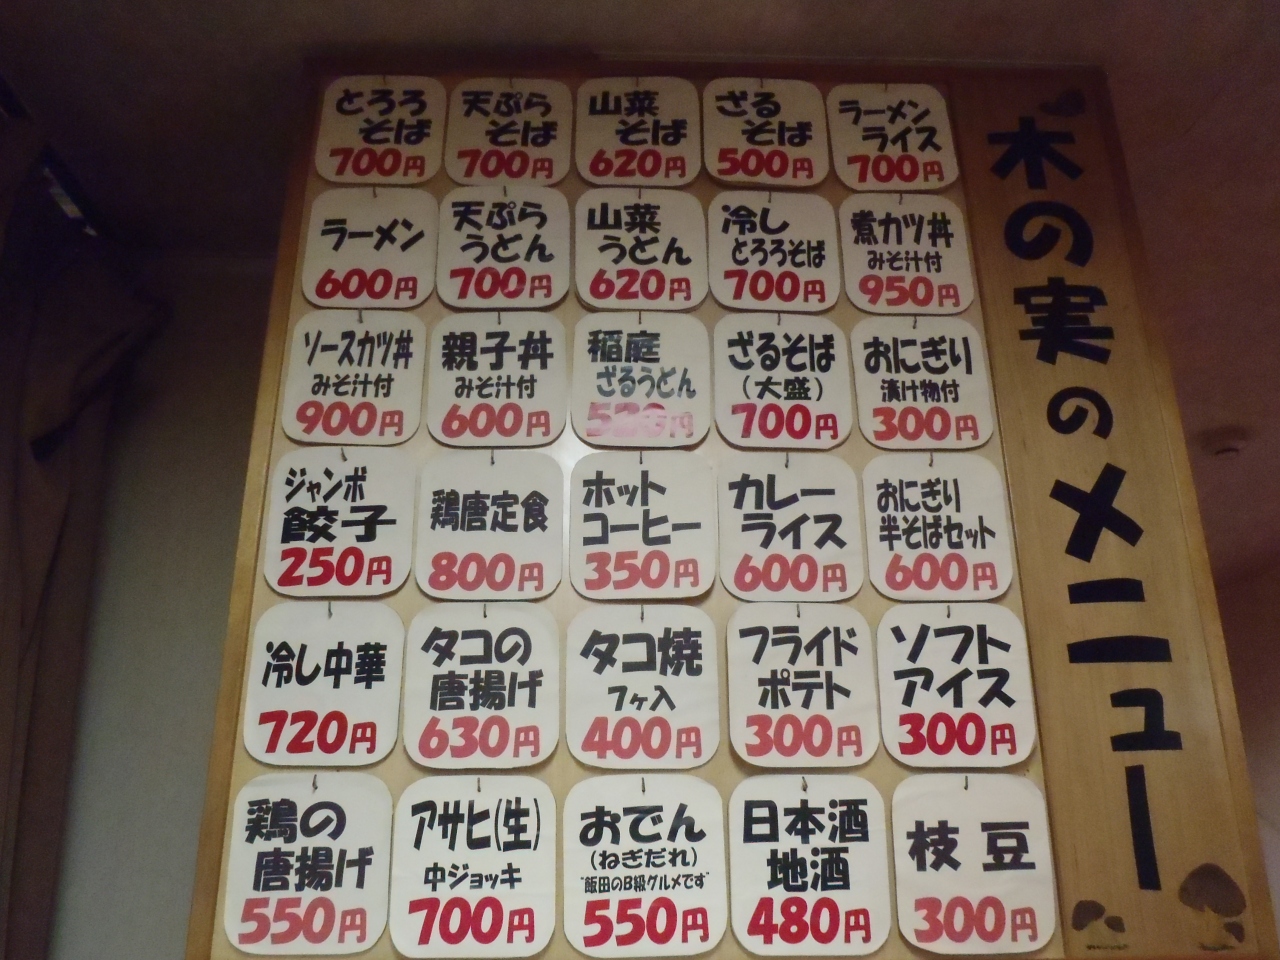 木の実のメニュー
とろろ
そば
700円
天ぷら
そば
700円
山菜
そば
620円
ざる
そば
500円
ラーメン
ライス
700円
ラーメン
600円
天ぷら
うどん
700円
山菜
うどん
620円
冷し
とろろそば
700円
煮カツ丼
みそ汁付
950円
ソースカツ丼
みそ汁付
900円
親子丼
みそ汁付
600円
稲庭
ざるうどん
円
ざるそば
(大盛)
700円
おにぎり
漬け物付
300円
ジャンボ
餃子
250円
鶏唐定食
800円
ホット
コーヒー
350円
カレー
ライス
600円
おにぎり
半そばセット
600円
冷し中華
720円
タコの
唐揚げ
630円
タコ焼
7ヶ入
400円
フライド
ポテト
300円
ソフト
アイス
300円
鶏の
唐揚げ
550円
アサヒ(生)
中ジョッキ
700円
おでん
(ねぎだれ)
"飯田のB級グルメです"
550円
日本酒
地酒
480円
枝豆
300円